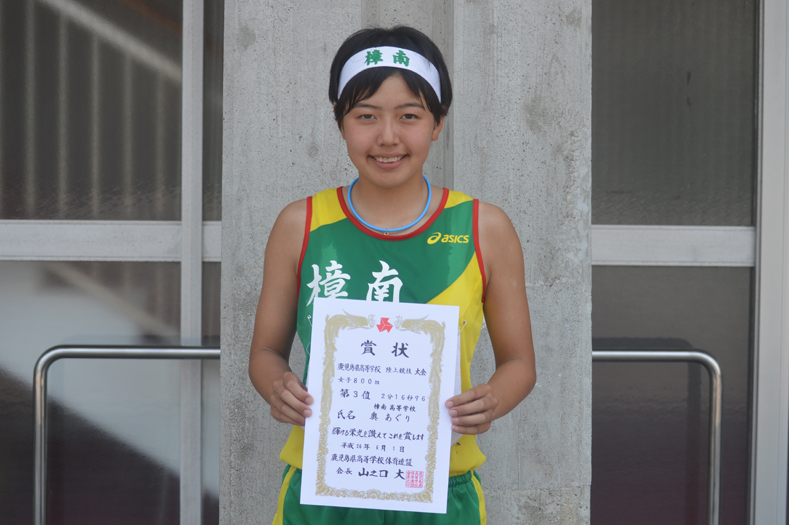 樟南
asics
樟南
賞状
鹿児島県高等学校 陸上競技 大会
女子800m
第3位 2分16秒76
樟南 高等学校
氏名 奥 あぐり
輝ける栄光を讃えてこれを賞します
平成26年 6月1日
鹿児島県高等学校体育連盟
会長 山之口 大